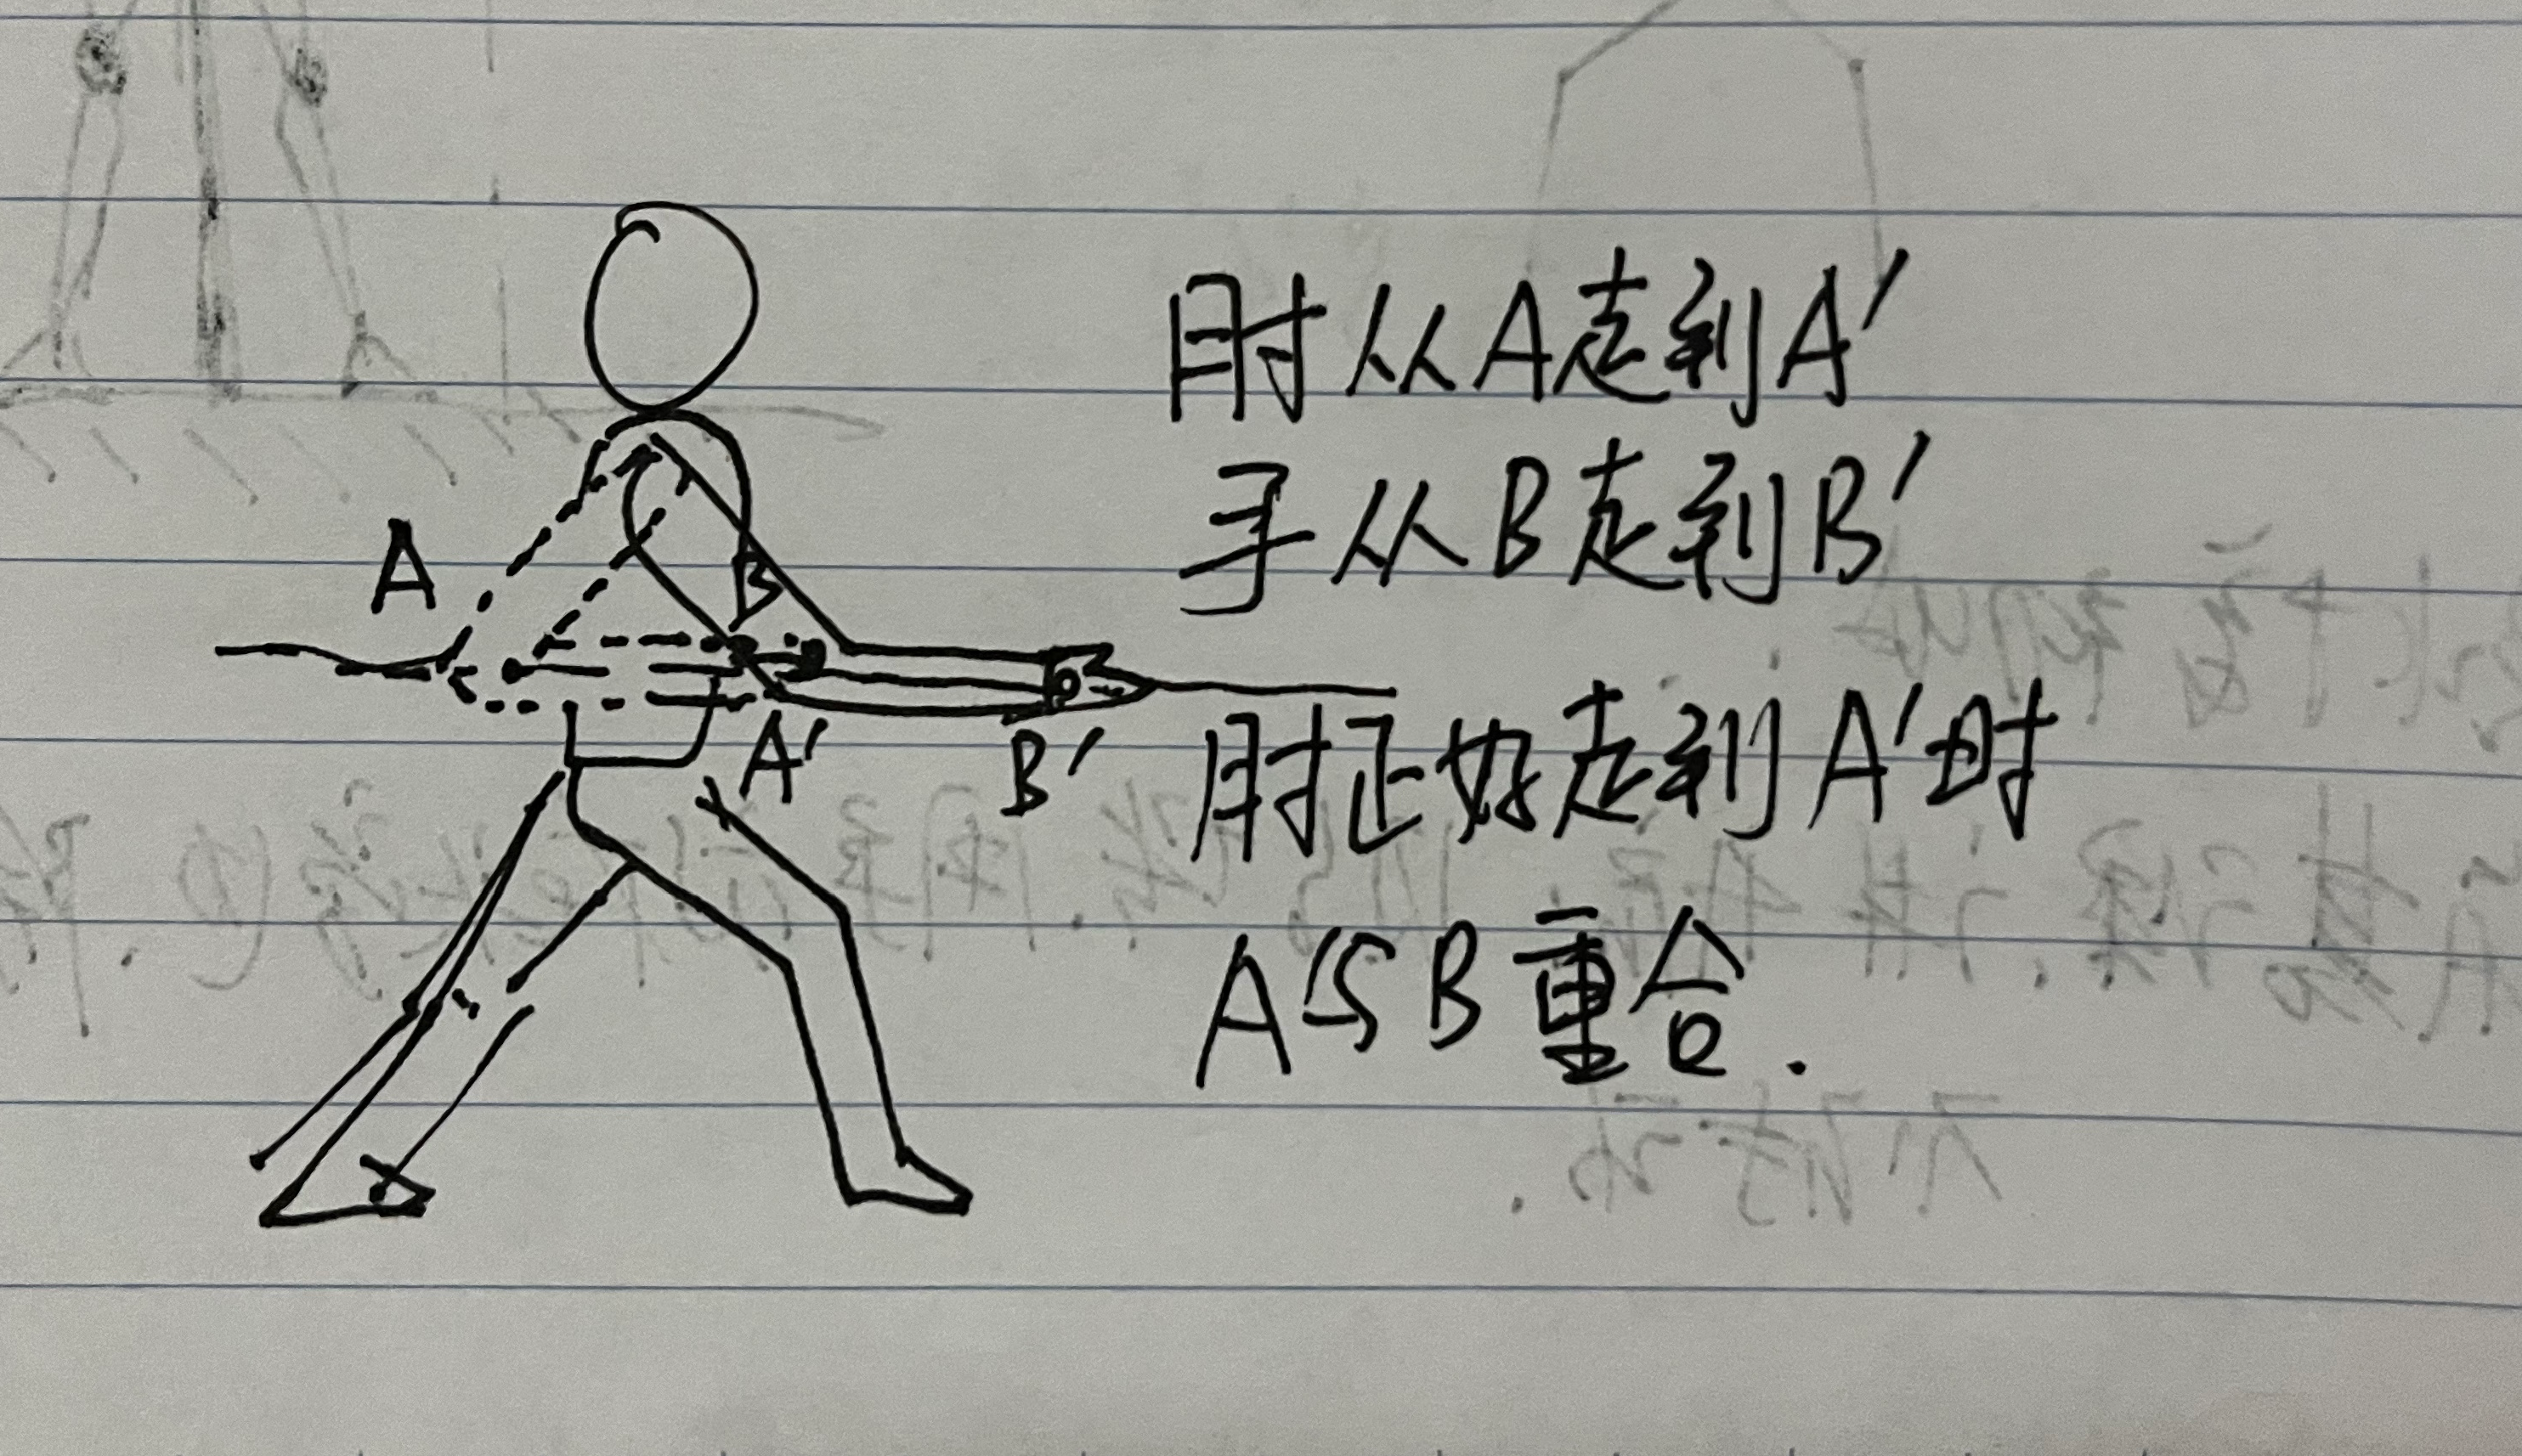 肘从A走到A′
手从B走到B′
A
B
A′
B′
肘正好走到A′时
A与B重合.